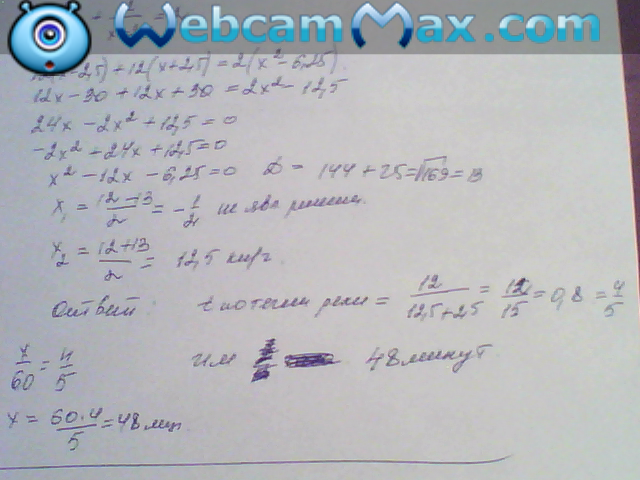 WebcamMax.com
12(x-2,5)+12(x+2,5)=2(x²-6,25)
12x-30+12x+30=2x²-12,5
24x-2x²+12,5=0
-2x²+24x+12,5=0
x²-12x-6,25=0 D=144+25=√169=13
x₁=(12-13)/2=-1/2 не явл решени.
x₂=(12+13)/2=12,5 км/г
Ответ: t по течени реки=12/(12,5+2,5)=12/15=0,8=4/5
x/60=4/5 или 48 минут
x=60·4/5=48 мин